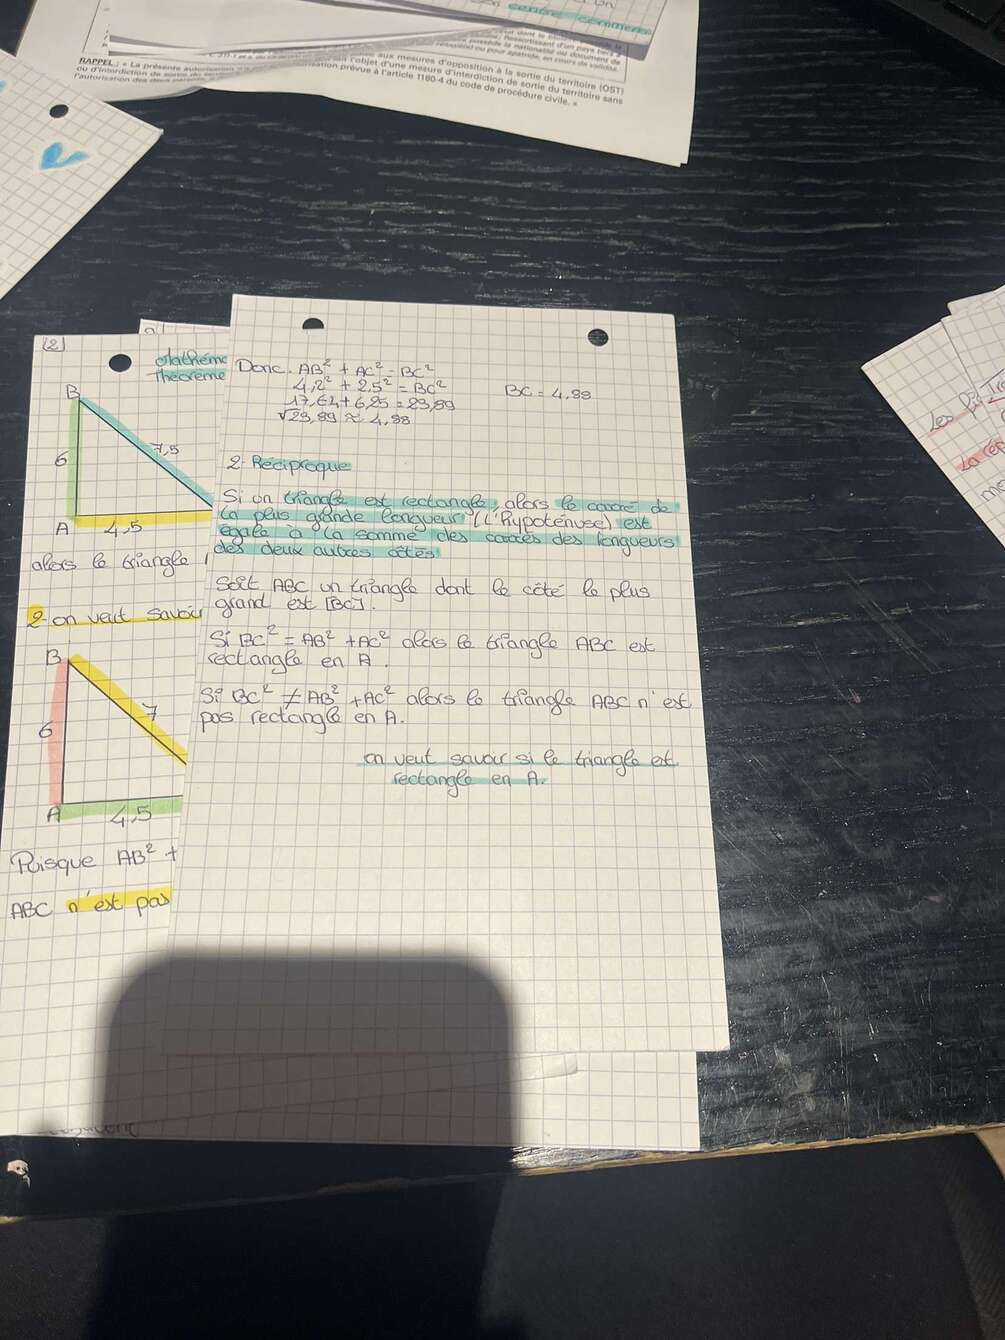 centre commerc
mesures d'opposition à la sortie du territoire (OST)
RAPPEL : « La présente autorisation
l'objet d'une mesure d'interdiction de sortie du territoire sans
ou d'interdiction de sortie du territoire
prévue à l'article 1180-4 du code de procédure civile. »
l'autorisation des deux parents,
(2)
Mathéma
Théorème
B
7,5
6
A
4,5
alors le triangle
2- on veut savoir
B
7
6
A
4,5
Puisque AB² +
ABC n'est pas
Donc. AB² + AC² = BC²
4,2² + 2,5² = BC²
BC = 4,88
17,64 + 6,25 = 23,89
√23,89 ≈ 4,88
2- Réciproque
Si un triangle est rectangle, alors le carré de
la plus grande longueur (l'hypoténuse) est
égale à la somme des carrés des longueurs
des deux autres côtés.
Soit ABC un triangle dont le côté le plus
grand est [BC].
Si BC² = AB² + AC² alors le triangle ABC est
rectangle en A.
Si BC² ≠ AB² + AC² alors le triangle ABC n'est
pas rectangle en A.
on veut savoir si le triangle est
rectangle en A.
Les
La rép